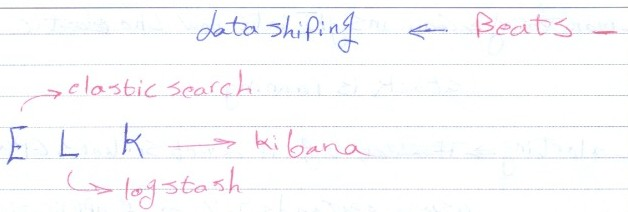 data shiping ← Beats –
elastic search
E L K → kibana
logstash